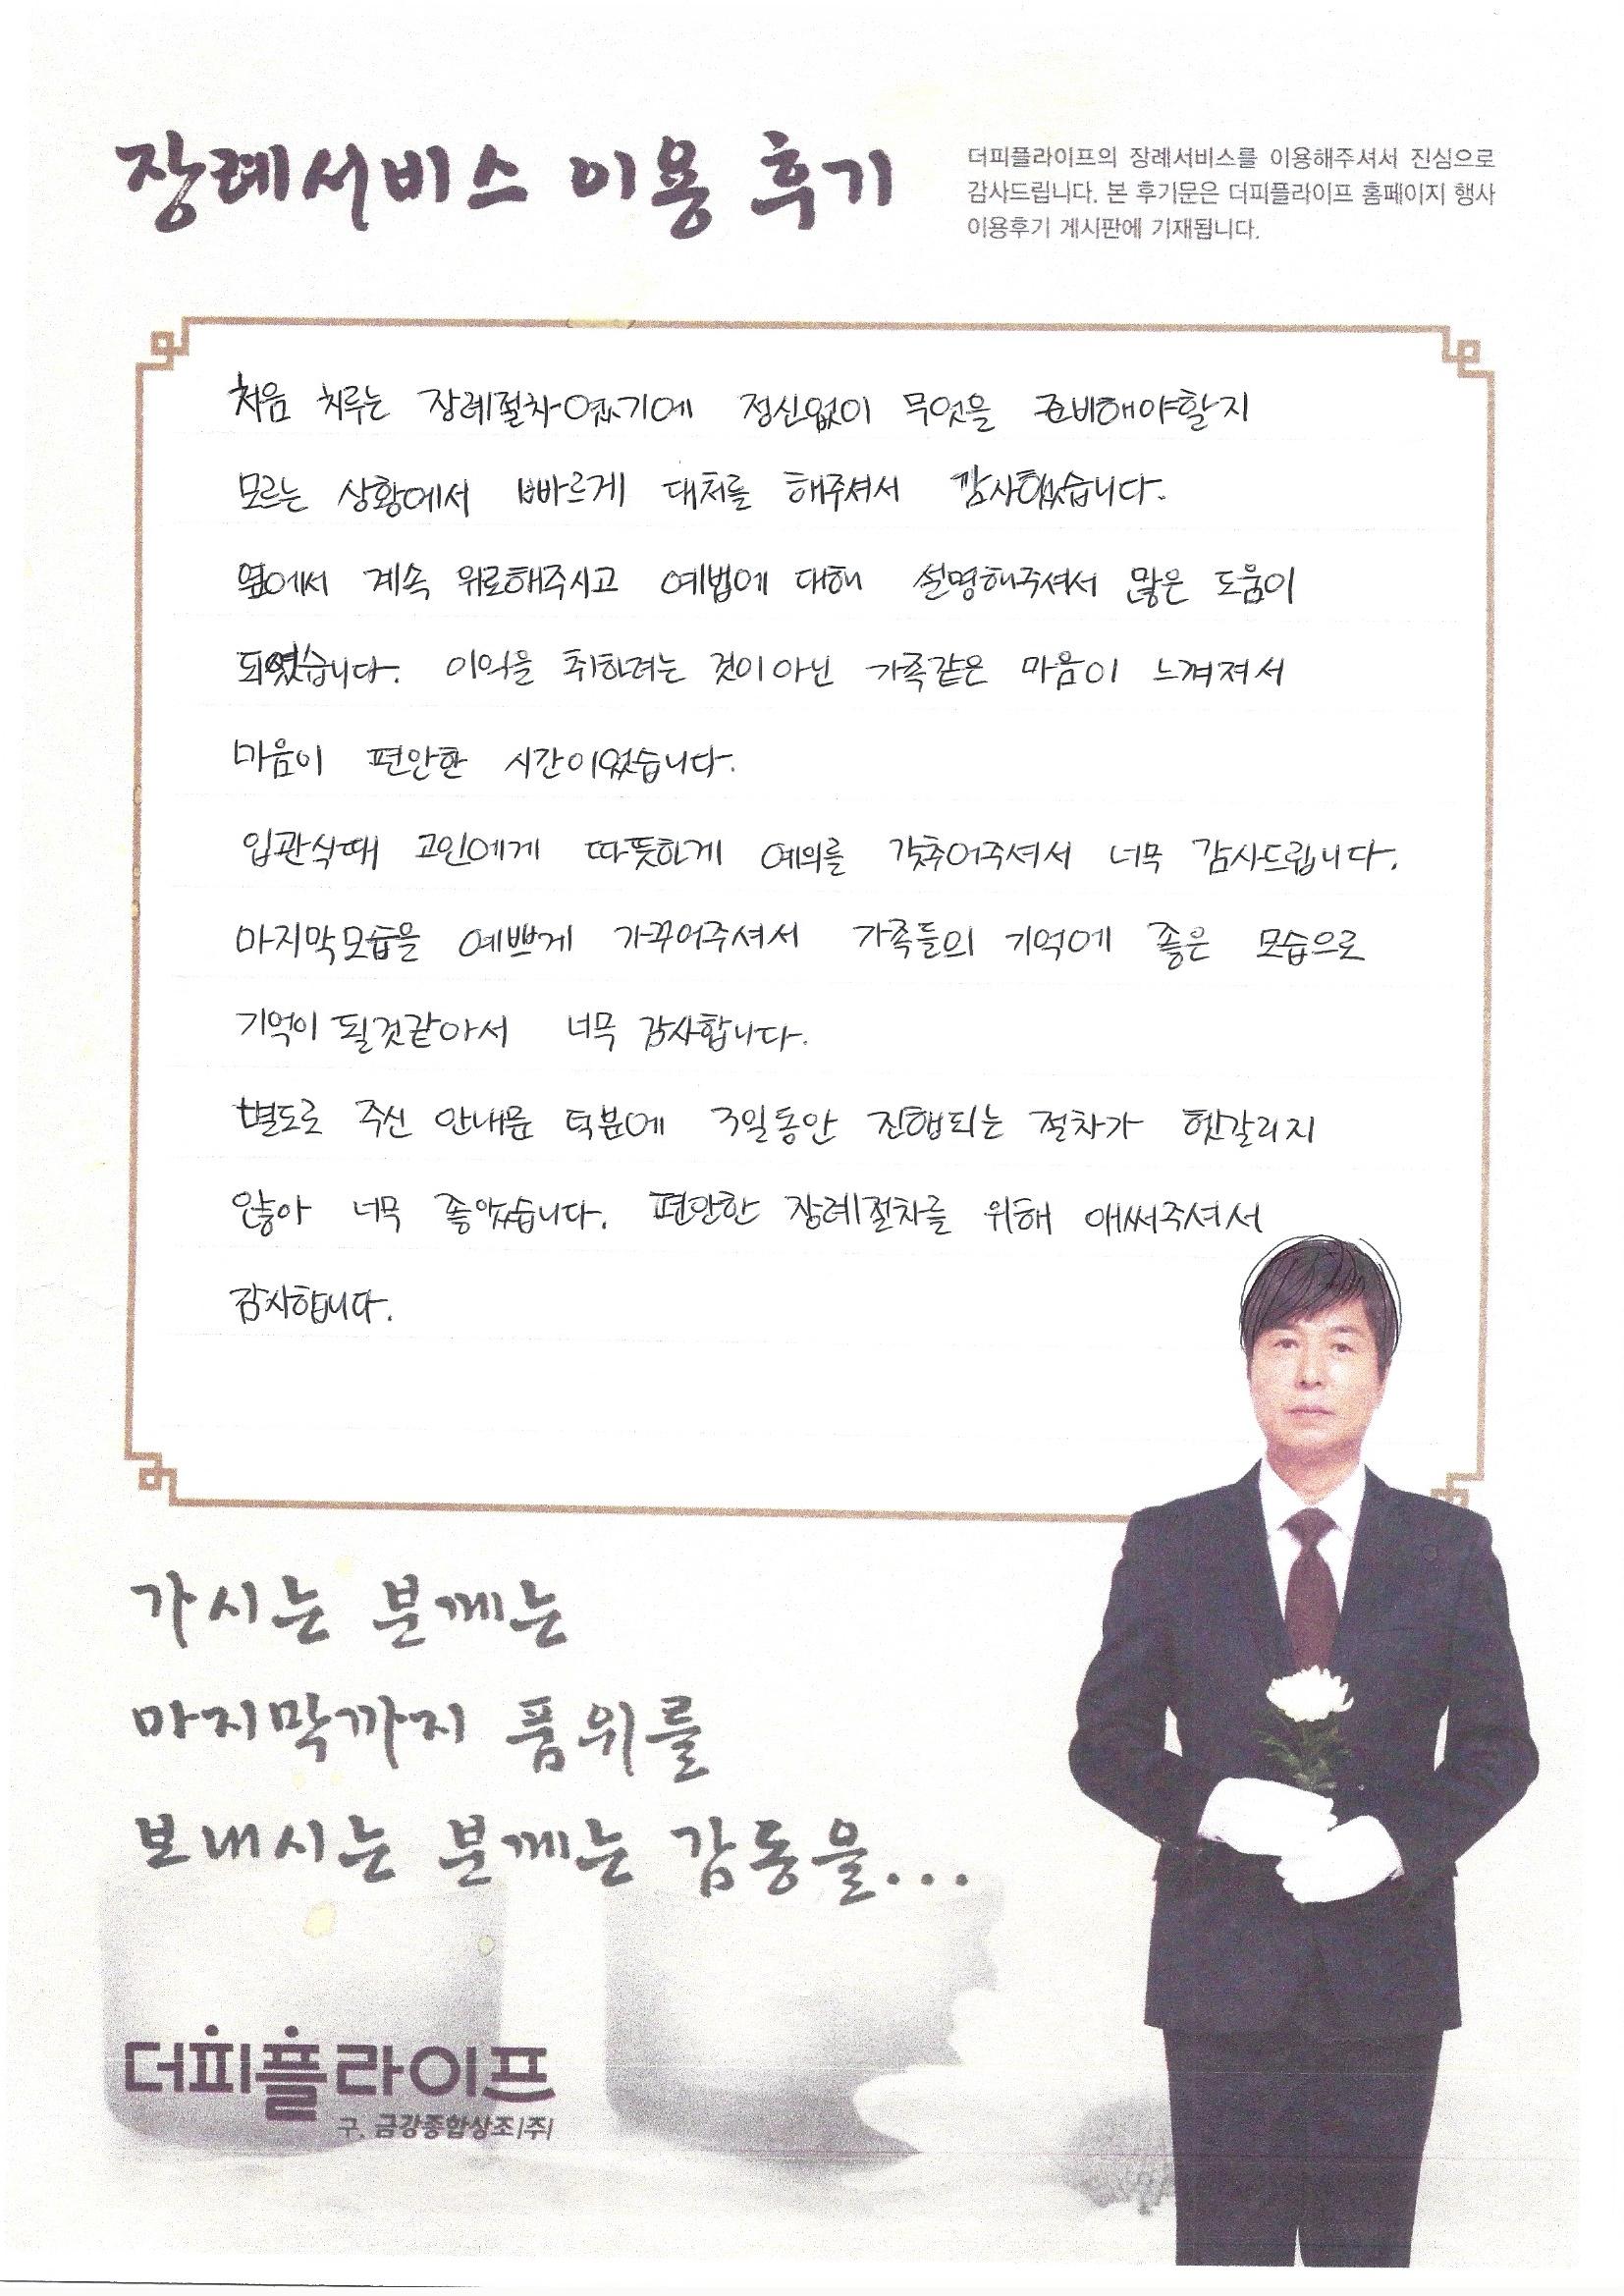 장례서비스 이용 후기
더피플라이프의 장례서비스를 이용해주셔서 진심으로
감사드립니다. 본 후기문은 더피플라이프 홈페이지 행사
이용후기 게시판에 기재됩니다.
처음 치루는 장례절차였기에 정신없이 무엇을 준비해야할지
모르는 상황에서 빠르게 대처를 해주셔서 감사했습니다.
옆에서 계속 위로해주시고 예법에 대해 설명해주셔서 많은 도움이
되였습니다. 이익을 취하려는 것이아닌 가족같은 마음이 느껴져서
마음이 편안한 시간이었습니다.
입관식때 고인에게 따뜻하게 예의를 갖추어주셔서 너무 감사드립니다.
마지막모습을 예쁘게 가꾸어주셔서 가족들의 기억에 좋은 모습으로
기억이 될것같아서 너무 감사합니다.
별도로 주신 안내문 덕분에 3일동안 진행되는 절차가 헷갈리지
않아 너무 좋았습니다. 편안한 장례절차를 위해 애써주셔서
감사합니다.
가시는 분께는
마지막까지 품위를
보내시는 분께는 감동을...
더피플라이프
구. 금강종합상조(주)